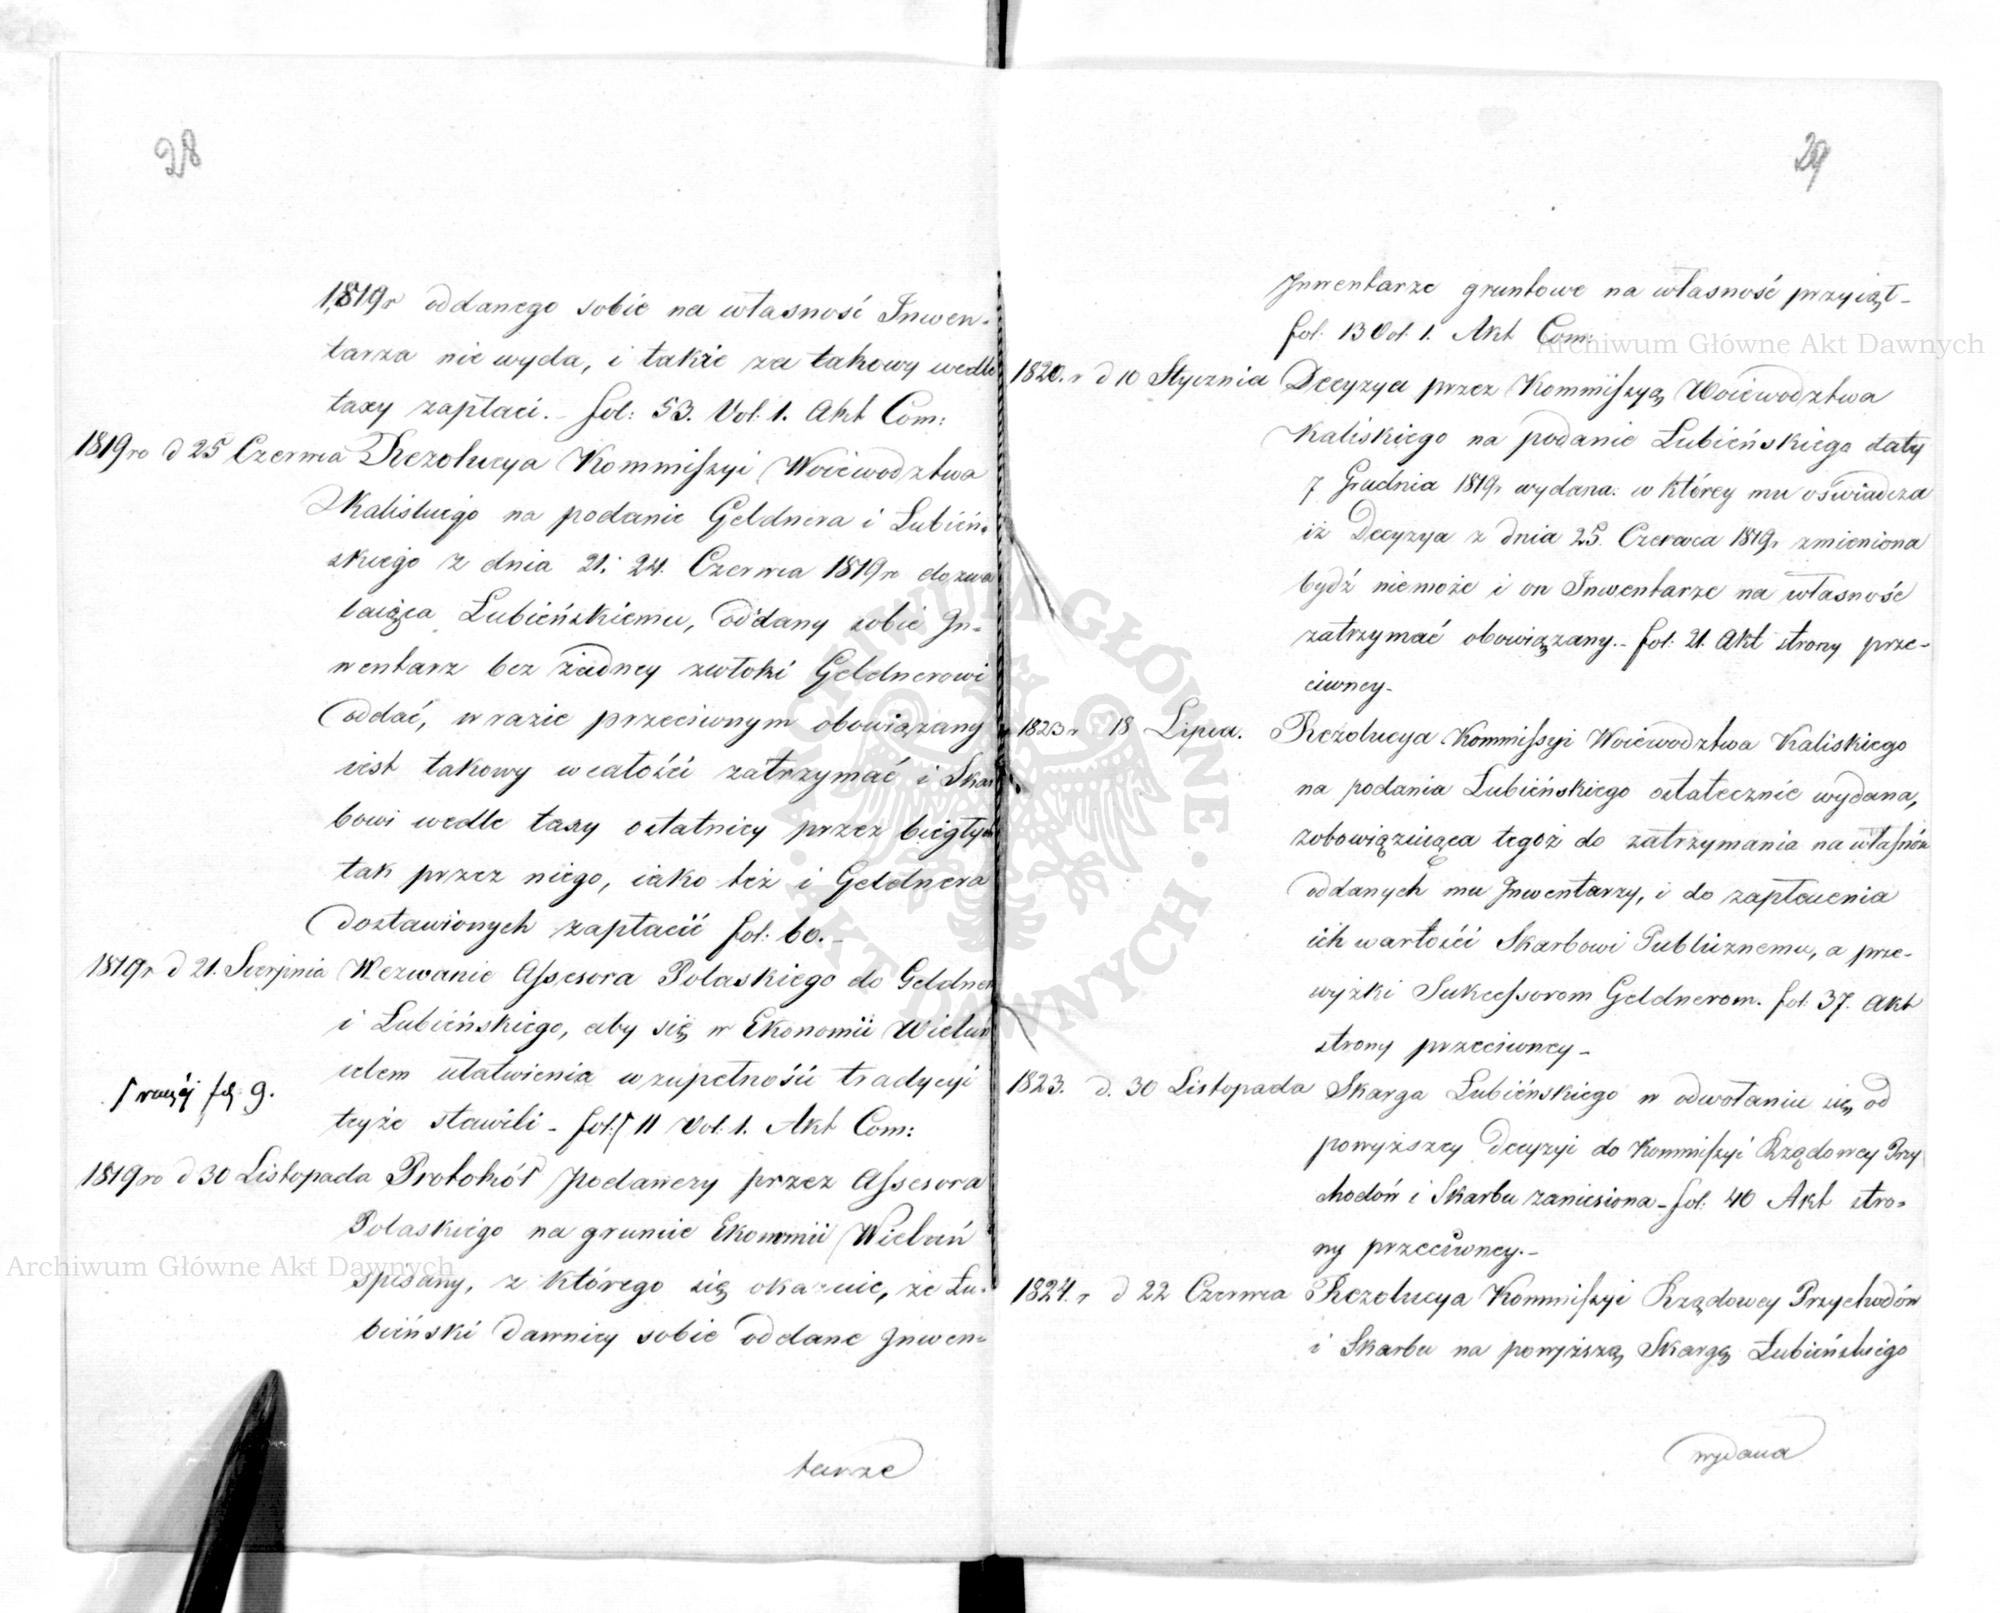 28
1819r oddanego sobie na własność Inwen-
tarza nie wyda, i takie za takowy wedle
taxy zapłaci. - fol: 53. Vol: 1. Akt Com:
1819ro d 25 Czerwca Rezolucya Kommissyi Woiewodztwa
Kaliskiego na podanie Geldnera i Łubień-
skiego z dnia 21: 24. Czerwca 1819ro dozwa
laiąca Łubieńskiemu, oddany sobie In-
wentarz bez żadney zwłoki Geldnerowi
oddać, w razie przeciwnym obowiązany
iest takowy w całości zatrzymać i Skar
bowi wedle taxy ostatniey przez biegłych
tak przez niego, iako też i Geldnera
dostawionych zapłacić fol: 60. -
1819r d 21. Sierpnia Wezwanie Assesora Polaskiego do Geldner
i Łubieńskiego, aby się w Ekonomii Wieluń
celem ułatwienia w zupełności tradycyi
fol. 9.
teyże stawili - fol: 11 Vol: 1. Akt Com:
1819ro d 30 Listopada Protokół podawczy przez Assesora
Polaskiego na gruncie Ekonomii Wieluń
spisany, z którego się okazuie, że Łu-
bieński dawniey sobie oddane Inwen-
tarze
29
Inwentarze gruntowe na własność przyiął -
fol. 13 Vol. 1. Akt Com:
1820. r d 10 Stycznia Decyzya przez Kommissyą Woiewodztwa
Kaliskiego na podanie Łubieńskiego daty
7 Grudnia 1819r wydana: w którey mu oświadcza
iż Decyzya z dnia 25. Czerwca 1819r zmieniona
bydź niemoże i on Inwentarze na własność
zatrzymać obowiązany. - fol: 21. Akt strony prze-
ciwney -
1823 r 18 Lipca. Rezolucya Kommissyi Woiewodztwa Kaliskiego
na podania Łubieńskiego ostatecznie wydana,
zobowiązuiąca tegoż do zatrzymania na własność
oddanych mu Inwentarzy, i do zapłacenia
ich wartości Skarbowi Publicznemu, a prze-
wyżki Sukcessorom Geldnerom. fol: 37. Akt
strony przeciwney -
1823. d. 30 Listopada Skarga Łubieńskiego w odwołaniu się od
powyższey Decyzyi do Kommissyi Rządowey Przy
chodów i Skarbu zaniesiona - fol: 40 Akt stro-
ny przeciwney. -
1824. r d 22 Czerwca Rezolucya Kommissyi Rządowey Przychodów
i Skarbu na powyższą Skargę Łubieńskiego
wydana
Archiwum Główne Akt Dawnych
Archiwum Główne Akt Dawnych
ARCHIWUM GŁÓWNE AKT DAWNYCH